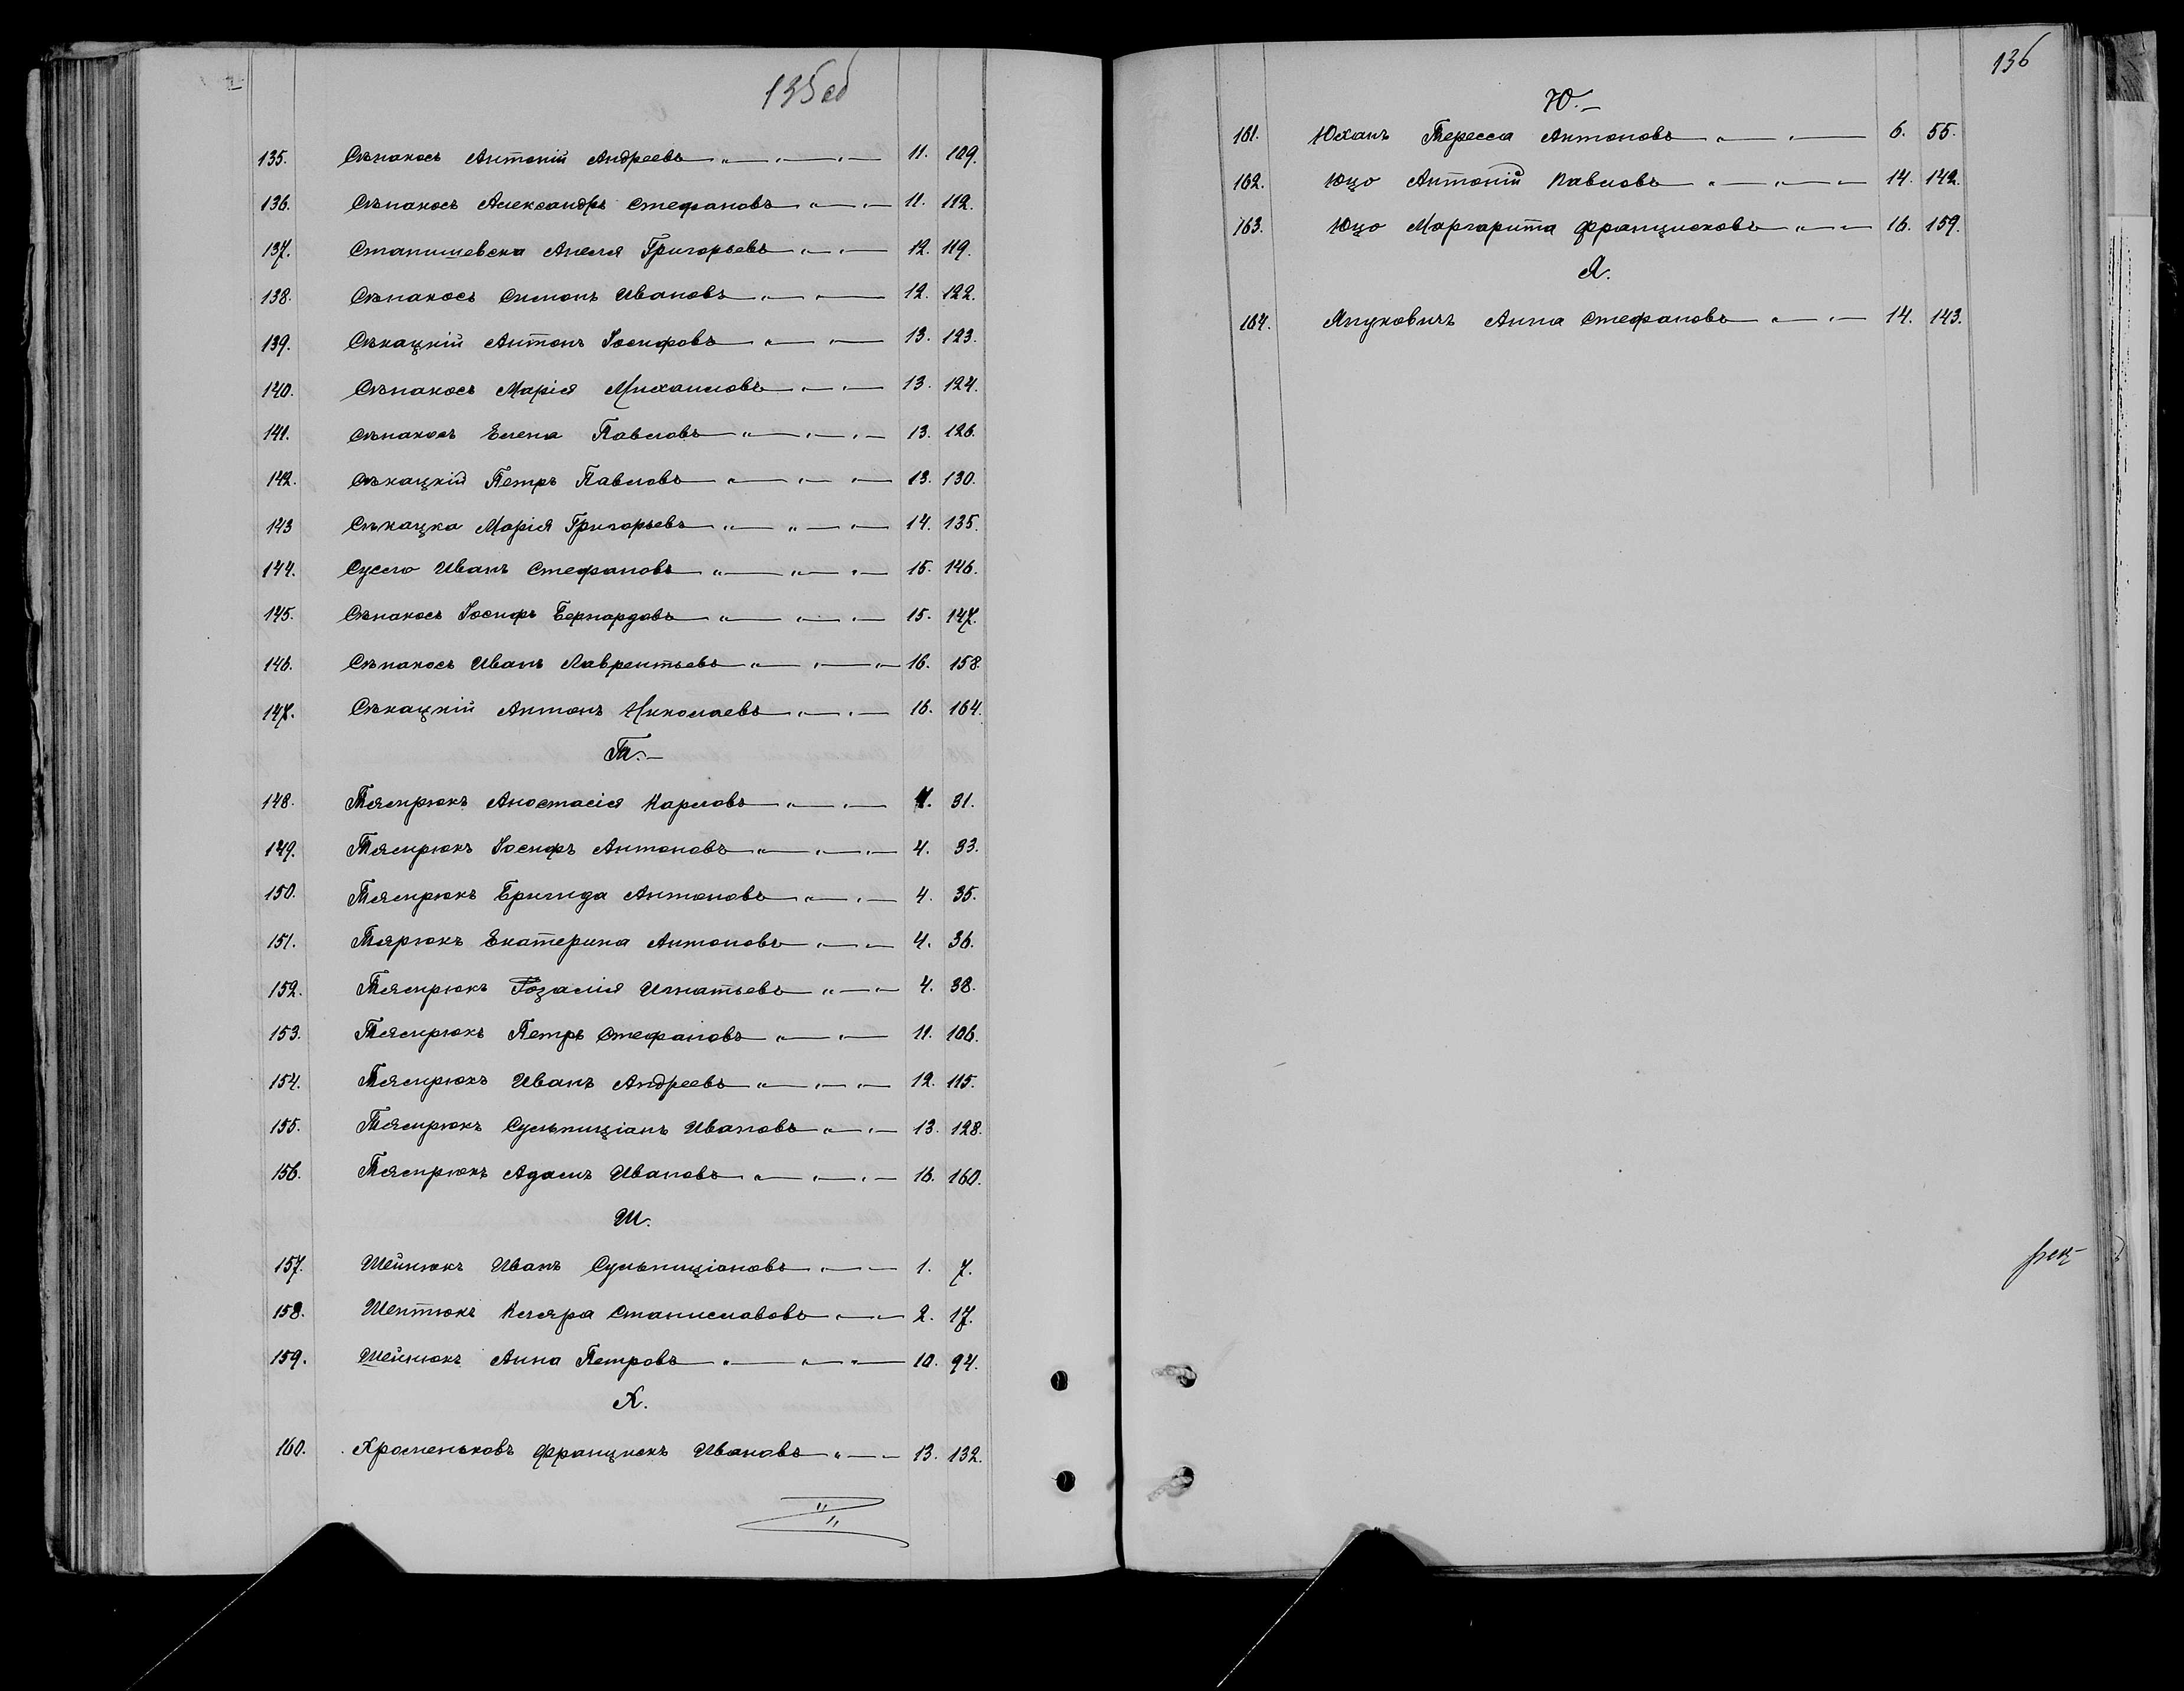 135об
135. Сѣпакосъ Антоній Андреевъ 11. 109.
136. Сѣпакосъ Александръ Стефановъ 11. 112.
137. Станишевска Анеля Григорьевъ 12. 119.
138. Сѣпакосъ Симонъ Ивановъ 12. 122.
139. Сѣкацкій Антонъ Іосифовъ 13. 123.
140. Сѣпакосъ Марія Михаиловъ 13. 124.
141. Сѣпакосъ Елена Павловъ 13. 126.
142. Сѣкацкій Петръ Павловъ 13. 130.
143 Сѣкацка Марія Григорьевъ 14. 135.
144. Сусло Иванъ Стефановъ 15. 146.
145. Сѣпакосъ Іосифъ Бернардовъ 15. 147.
146. Сѣпакосъ Иванъ Лаврентьевъ 16. 158
147. Сѣкацкій Антонъ Николаевъ 16. 164.
Т.
148. Тямрюкъ Анастасія Карловъ 4. 31.
149. Тямрюкъ Іосифъ Антоновъ 4. 33.
150. Тямрюкъ Бригида Антоновъ 4. 35.
151. Тярюкъ Екатерина Антоновъ 4. 36.
152. Тямрюкъ Розалія Игнатьевъ 4. 38.
153. Тямрюкъ Петръ Стефановъ 11. 106.
154. Тямрюкъ Иванъ Андреевъ 12. 115.
155. Тямрюкъ Сульпиціанъ Ивановъ 13. 128.
156. Тямрюкъ Адамъ Ивановъ 16. 160.
Ш.
157. Шейнюкъ Иванъ Сульпиціановъ 1. 7.
158. Шептюкъ Кляра Станиславовъ 2. 17.
159. Шейнюкъ Анна Петровъ 10. 94.
Х.
160. Хроменьковъ Францискъ Ивановъ 13. 132.
136
Ю.
161. Юханъ Тересса Антоновъ 6. 55.
162. Юцо Антоній Павловъ 14. 142.
163. Юцо Маргарита Францисковъ 16. 159.
Я.
164. Януковичъ Анна Стефановъ 14. 143.